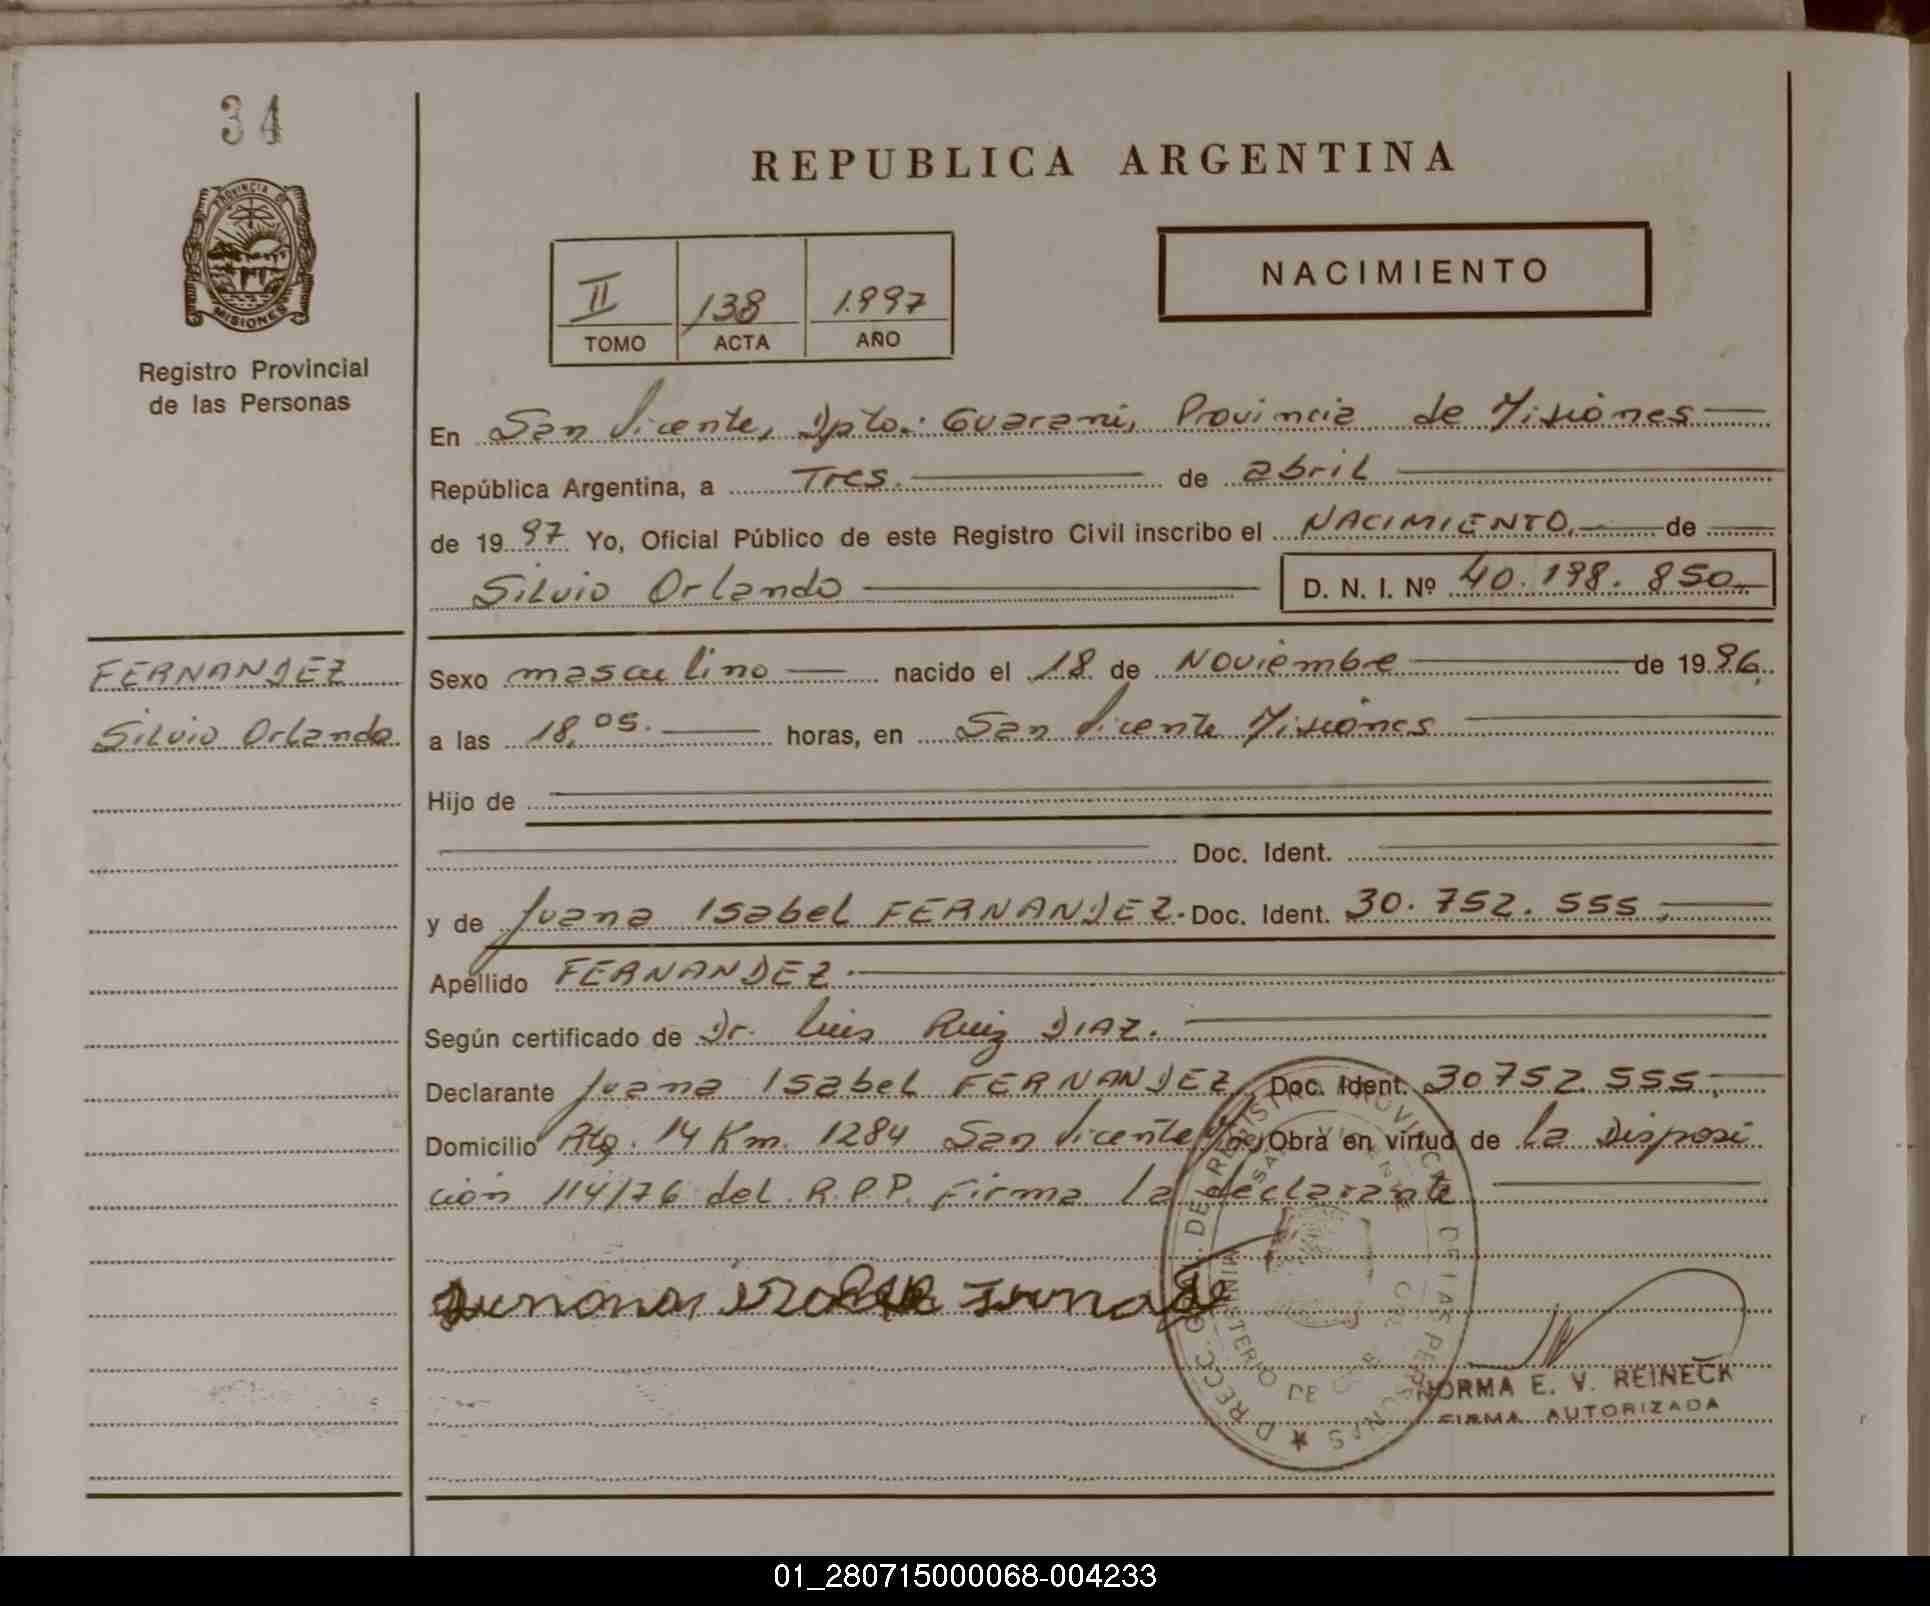 34
PROVINCIA DE
MISIONES
Registro Provincial
de las Personas
REPUBLICA ARGENTINA
II 138 1.997
TOMO ACTA AÑO
NACIMIENTO
En San Vicente, Dpto.: Guarani, Provincia de Misiones
República Argentina, a Tres. de abril
de 19 97 Yo, Oficial Público de este Registro Civil inscribo el NACIMIENTO. de
Silvio Orlando D. N. I. Nº 40.198.850.
FERNANDEZ
Silvio Orlando
Sexo masculino nacido el 18 de Noviembre de 19 96.
a las 18,05. horas, en San Vicente Misiones
Hijo de
Doc. Ident.
y de Juana Isabel FERNANDEZ. Doc. Ident. 30.752.555,
Apellido FERNANDEZ.
Según certificado de Dr. Luis Ruiz DIAZ.
Declarante Juana Isabel FERNANDEZ, Doc. Ident. 30752.555,
Domicilio Rta. 14 Km. 1284 San Vicente Obra en virtud de la Disposi
ción 114/76 del R.P.P. Firma la declarante
NORMA E. V. REINECK
FIRMA AUTORIZADA
01_280715000068-004233